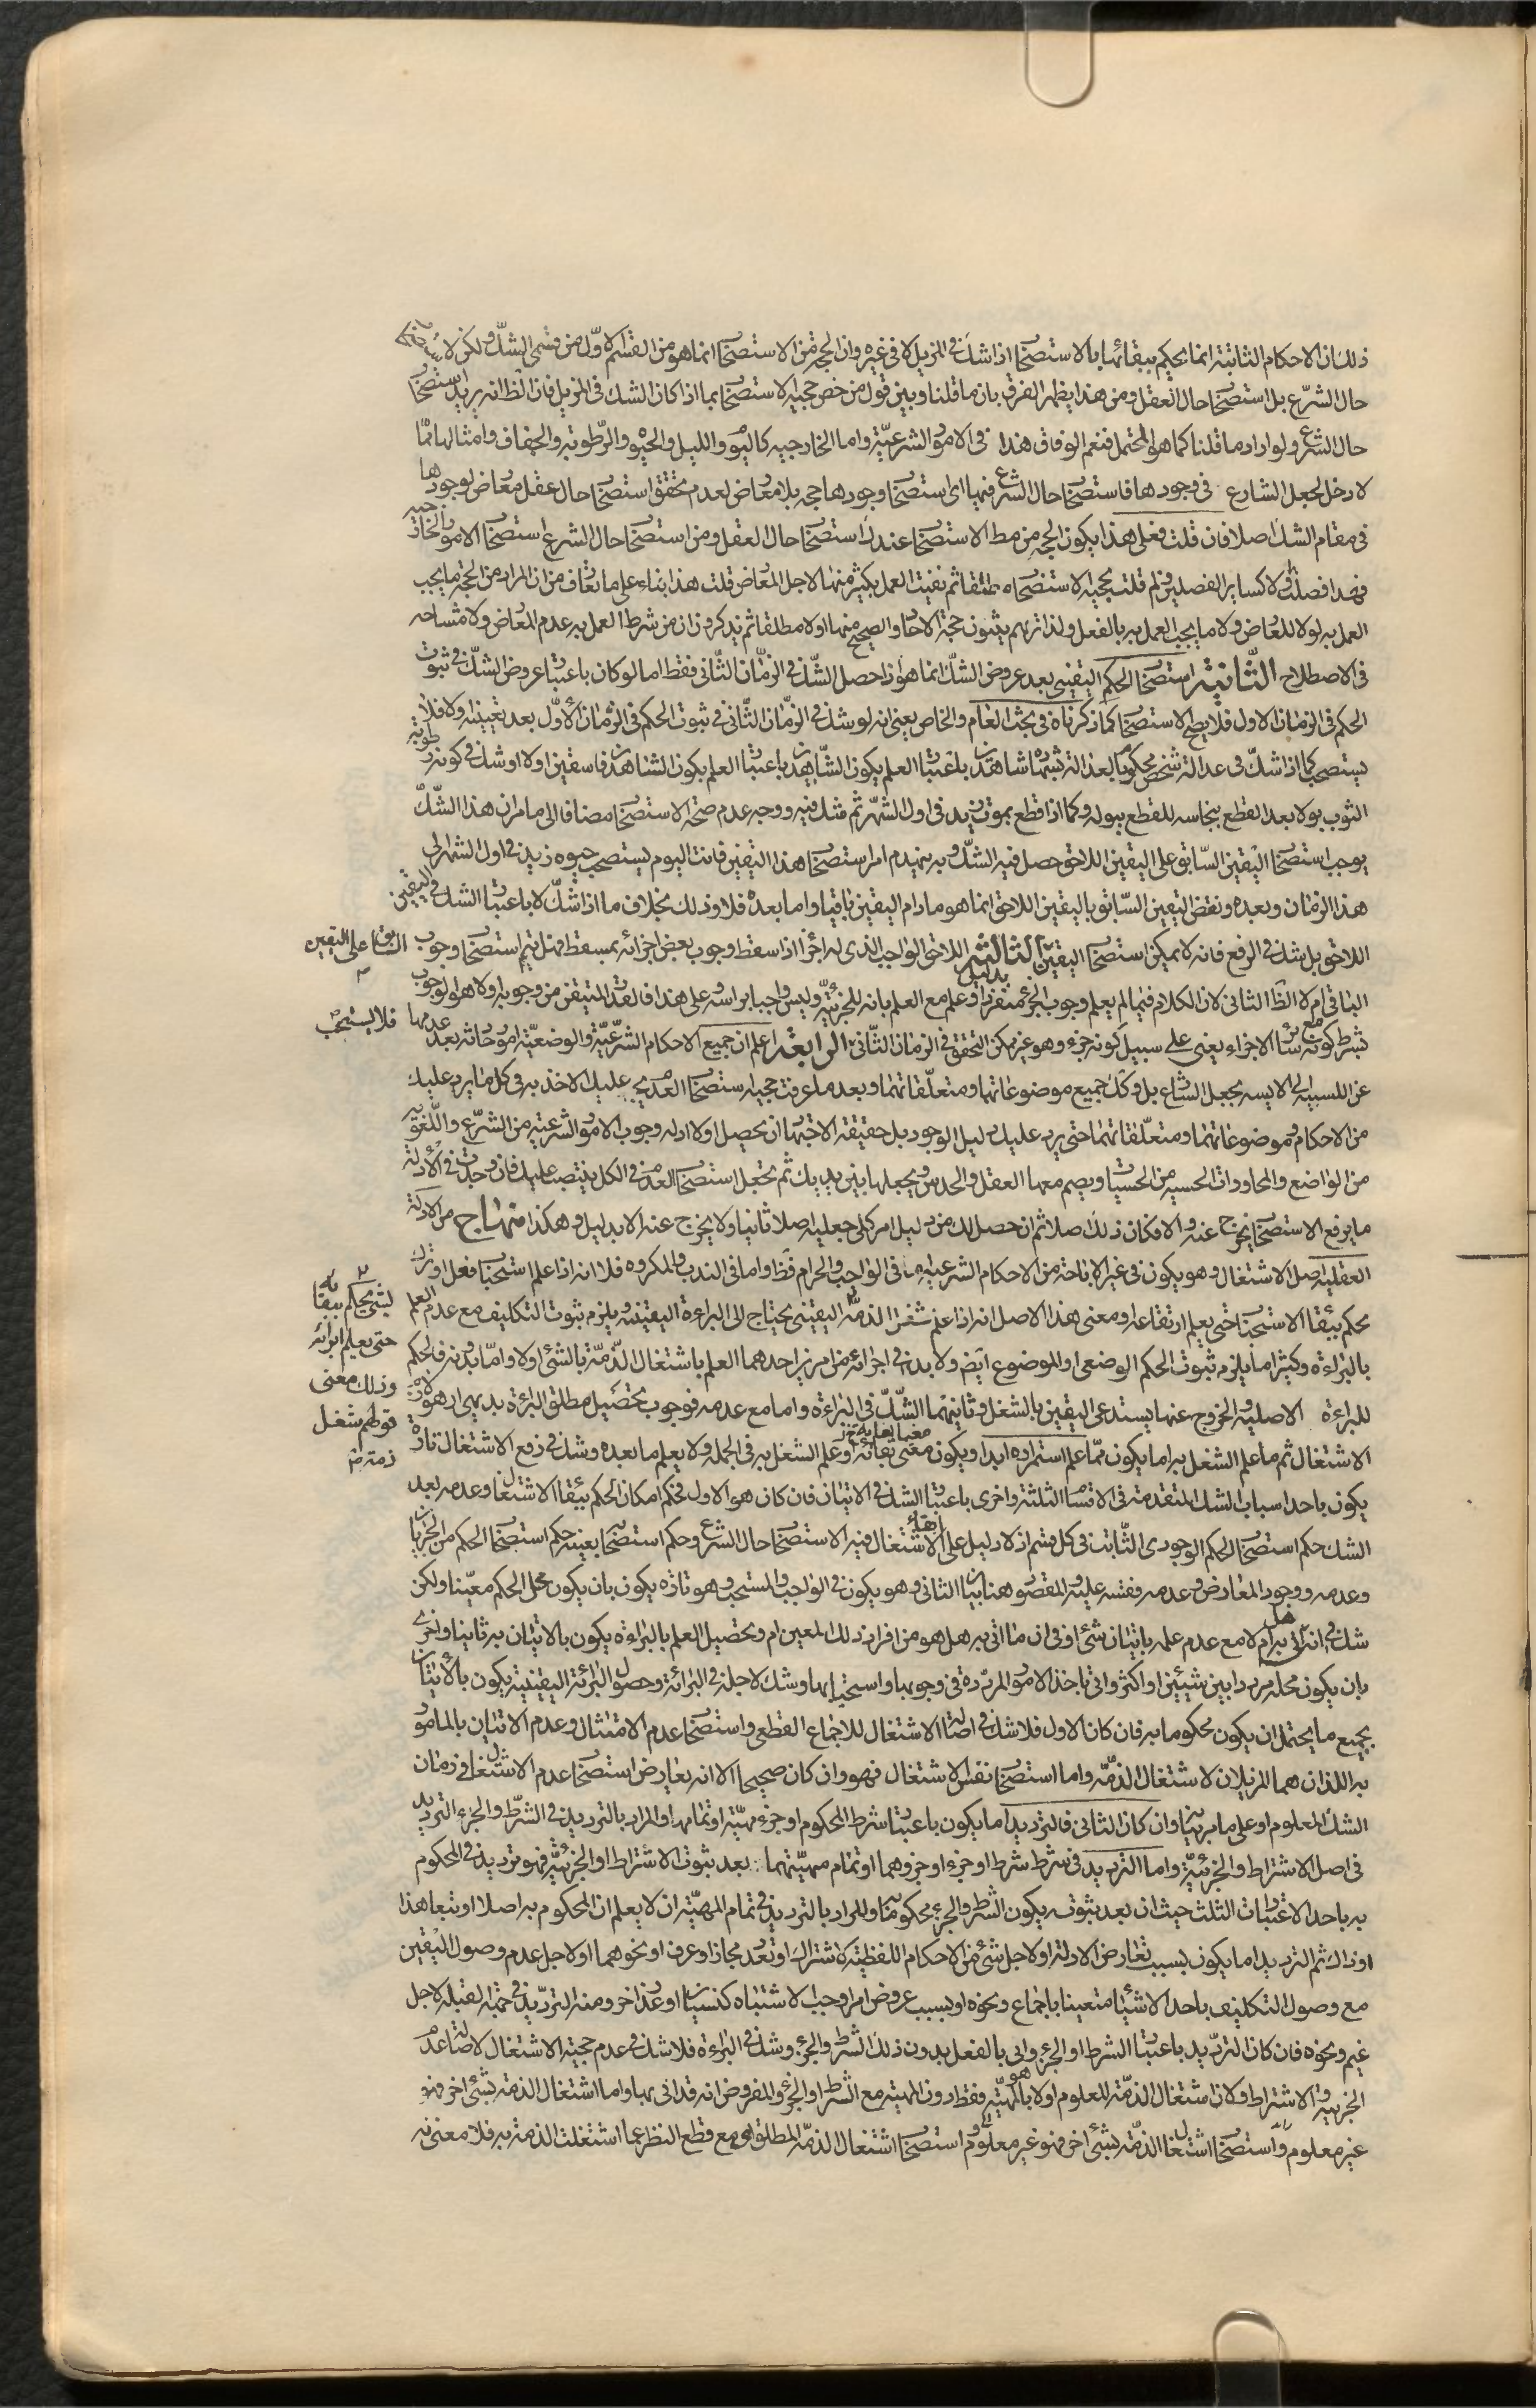 ذلك ان الاحكام الثابتة انما يحكم ببقائها بالاستصحاب اذا شك فى المزيل لا فى غيره وان الحجة من الاستصحاب انما هو من القسم الاول من قسمى الشك ولكن لا استصحاب
حال الشرع بل استصحاب حال العقل ومن هذا يظهر الفرق بان ما قلنا وبين قول من خص حجية الاستصحاب بما اذا كان الشك فى المزيل فان الظ انه يريد استصحاب
حال الشرع ولو اراد ما قلنا كما هو المحتمل فنعم الوفاق هذا فى الامور الشرعية واما الخارجيه كاليوم والليل والحيوة والرطوبة والجفاف وامثالها مما
لا دخل لجعل الشارع فى وجودها فاستصحاب حال الشرع فيها اى استصحاب وجودها حجة بلا معارض لعدم تحقق استصحاب حال عقل معارض لوجودها
فى مقام الشك اصلا فان قلت فعلى هذا يكون الحجة من مط الاستصحاب عندك استصحاب حال العقل ومن استصحاب حال الشرع استصحاب الامور الخارجية
فهذا فصلت لا كساير المفصلين فلم قلت بحجية الاستصحاب مطلقا ثم نفيت العمل بكثير منها لاجل المعارض قلت هذا بناء على ما تعارف من ان المراد من الحجة ما يجب
العمل به لولا المعارض ولا ما يجب العمل به بالفعل ولذا تريهم يثبتون حجية الاحاد والصحيح منها اولا مطلقا ثم يذكرون ان من شرط العمل به عدم المعارض ولا مشاحة
فى الاصطلاح الثانية استصحاب الحكم اليقينى بعد عروض الشك انما هو اذا حصل الشك فى الزمان الثانى فقط اما لو كان باعتبار عروض الشك فى ثبوت
الحكم فى الزمان الاول فلا يصح الاستصحاب كما ذكرناه فى بحث العام والخاص يعنى انه لو شك فى الزمان الثانى فى ثبوت الحكم فى الزمان الاول بعد تعيينه اولا فلا
يستصحب كما اذا شك فى عدالة شخص محكوم بعدالته بشهادة شاهدين باعتبار العلم بكون الشاهدين باعتبار العلم بكون الشاهدين فاسقين اولا او شك فى كونه رطوبة
الثوب بولا بعد القطع بنجاسته للقطع ببوله وكما اذا قطع بموت زيد فى اول الشهر ثم شك فيه ووجه عدم صحة الاستصحاب مضافا الى ما مر ان هذا الشك
يوجب استصحاب اليقين السابق على اليقين اللاحق حصل فيه الشك وبه ينهدم امر استصحاب هذا اليقين فانت اليوم يستصحب حيوة زيد فى اول الشهر الى
هذا الزمان وبعده ونقض اليقين السابق باليقين اللاحق انما هو ما دام اليقين باقيا واما بعده فلا وذلك بخلاف ما اذا شك لا باعتبار الشك فى اليقين
اللاحق بل شك فى الرفع فانه لا يمكن استصحاب اليقين السابق على اليقين اللاحق الثالثة الواجب الذى له اجزاء اذا سقط وجوب بعض اجزائه بمسقط فهل يتم استصحاب وجوب
الباقى ام لا الظ الثانى لان الكلام فيما لم يعلم وجوب الجزء منفردا وعلم مع العلم بانه للجزئية وليس واجبا براسه وعلى هذا فالقدر المتيقن من وجوبه اولا هو الوجوب
بشرط كونه مع سائر الاجزاء يعنى على سبيل كونه جزء وهو غير ممكن التحقق فى الزمان الثانى فلا يستصحب الرابعة اعلم ان جميع الاحكام الشرعية والوضعية امور حادثة بعد عدمها
عن الليسية الى الايسية بجعل الشارع بل وكك جميع موضوعاتها ومتعلقاتها وبعد ما عرفت حجية استصحاب العدم يجب عليك الاخذ به فى كل ما يرد عليك
من الاحكام وموضوعاتها ومتعلقاتها حتى يرد عليك دليل الوجود بل حقيقة الاجتهاد ان يحصل اولا ادلة وجوب الامور الشرعية من الشرع واللغوية
من الواضع والمحاورات الحسية من الحسيات ويضم معها العقل والحدس ويجعلها بين يديك ثم تجعل استصحاب العدم فى الكل ينتصب عليك فان وجدت فى الادلة
ما يرفع الاستصحاب يخرج عنه والا فكان ذلك اصلا ثم ان حصل لك من دليل امر كلى جعليه اصلا ثانيا ولا يخرج عنه الا بدليل وهكذا منهاج من الادلة
العقلية اصل الاشتغال وهو يكون فى غير الاباحة من الاحكام الشرعية اما فى الواجب والحرام فظ واما فى الندب والمكروه فلا انه اذا علم استحباب فعل او ترك
يحكم ببقاء الاستحباب حتى يعلم ارتفاعه ومعنى هذا الاصل انه اذا علم شغل الذمة بشئ يحكم ببقائه حتى يعلم ابرائه وذلك معنى قولهم شغل ذمة اليقينى يحتاج الى البراءة اليقينية ويلزم ثبوت التكليف مع عدم العلم
بالبراءة وكثيرا ما يلزم ثبوت الحكم الوضعى او الموضوع ايض ولا بد فى اجرائه من امرين احدهما العلم باشتغال الذمة بالشئ اولا واما بدونه فالحكم
للبراءة الاصلية والخروج عنها يستدعى اليقين بالشغل وثانيهما الشك فى البراءة واما مع عدمه فوجوب تحصيل مطلق البراءة بديهى اذ هو لازم
الاشتغال ثم ما علم الشغل به اما يكون مما علم استمراره ابدا ويكون معنى بقائه او علم الشغل به فى الجملة ولا يعلم ما بعده وشك فى رفع الاشتغال تارة
يكون باحد اسباب الشك المتقدمة فى الاقسام الثلثة واخرى باعتبار الشك فى الاتيان فان كان هو الاول فحكم امكان الحكم ببقاء الاشتغال وعدمه بعد
الشك حكم استصحاب الحكم الوجودى الثابت فى كل قسم اذ لا دليل على الاشتغال فيه الا استصحاب حال الشرع وحكم استصحابه بعينه حكم استصحاب الحكم من الجريان
وعدمه ووجود المعارض وعدمه وفقسه عليه والمقصود هنا بيان الثانى وهو يكون فى الواجب والمستحب وهو تارة يكون بان يكون محل الحكم معينا ولكن
شك فى انه هل اتى به ام لا مع عدم علمه باتيان شئ او فى ان ما اتى به هل هو من افراد ذلك المعين ام وتحصيل العلم بالبراءة يكون بالاتيان به ثانيا واخرى
بان يكون محله مرددا بين شيئين او اكثر واتى باحد الامور المرددة فى وجوبها واستحبابها وشك لاجله فى البرائة وحصول البرائة اليقينية يكون بالاتيان
بجميع ما يحتمل ان يكون محكوما به فان كان الاول فلا شك فى اصالة الاشتغال للاجماع القطعى واستصحاب عدم الامتثال وعدم الاتيان بالمامور
به اللذان هما المزيلان لاشتغال الذمة واما استصحاب نفس الاشتغال فهو وان كان صحيحا الا انه يعارض استصحاب عدم الاشتغال فى زمان
الشك المعلوم او على ما مر بيانه وان كان الثانى فالترديد اما يكون باعتبار شرط المحكوم او جزء مهيته او تمامها والمراد بالترديد فى الشرط والجزء الترديد
فى اصل الاشتراط والجزئية واما الترديد فى شرط شرط او جزء او جزوهما او تمام مهيتهما بعد ثبوت الاشتراط او الجزئية فهو ترديد فى المحكوم
به باحد الاعتبارات الثلث حيث ان بعد ثبوته يكون الشرط والجزء محكوما به والمراد بالترديد فى تمام المهية ان لا يعلم ان المحكوم به اصلا او تبعا هذا
او ذاك ثم الترديد اما يكون بسبب تعارض الادلة او لاجل شئ من الاحكام اللفظية كاشتراك او تعدد مجاز او عرف او نحوهما او لاجل عدم وصول اليقين
مع وصول التكليف باحد الاشياء متعينا باجماع ونحوه او بسبب عروض امر اوجب الاشتباه كنسيان او عذر اخر ومنه الترديد فى جهة القبلة لاجل
غيم ونحوه فان كان الترديد باعتبار الشرط او الجزء واتى بالفعل بدون ذلك الشرط والجزء وشك فى البراءة فلا شك فى عدم حجية الاشتغال لاصالة عدم
الجزئية والاشتراط ولان اشتغال الذمة المعلوم اولا هو بالمهية فقط دون المهية مع الشرط او الجزء والمفروض انه قد اتى بها واما اشتغال الذمة بشئ اخر فهو
غير معلوم واستصحاب اشتغال الذمة بشئ اخر فهو غير معلوم واستصحاب اشتغال الذمة المطلق اى مع قطع النظر عما اشتغلت الذمة به فلا معنى له